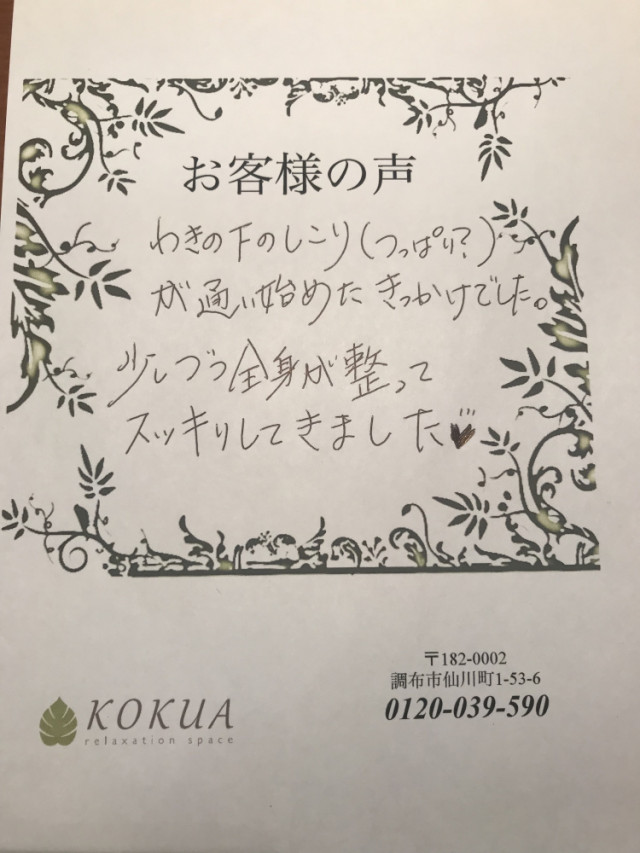 お客様の声
わきの下のしこり(つっぱり?)
が通い始めたきっかけでした。
少しづつ全身が整って
スッキリしてきました♥
〒182-0002
調布市仙川町1-53-6
0120-039-590
KOKUA
relaxation space